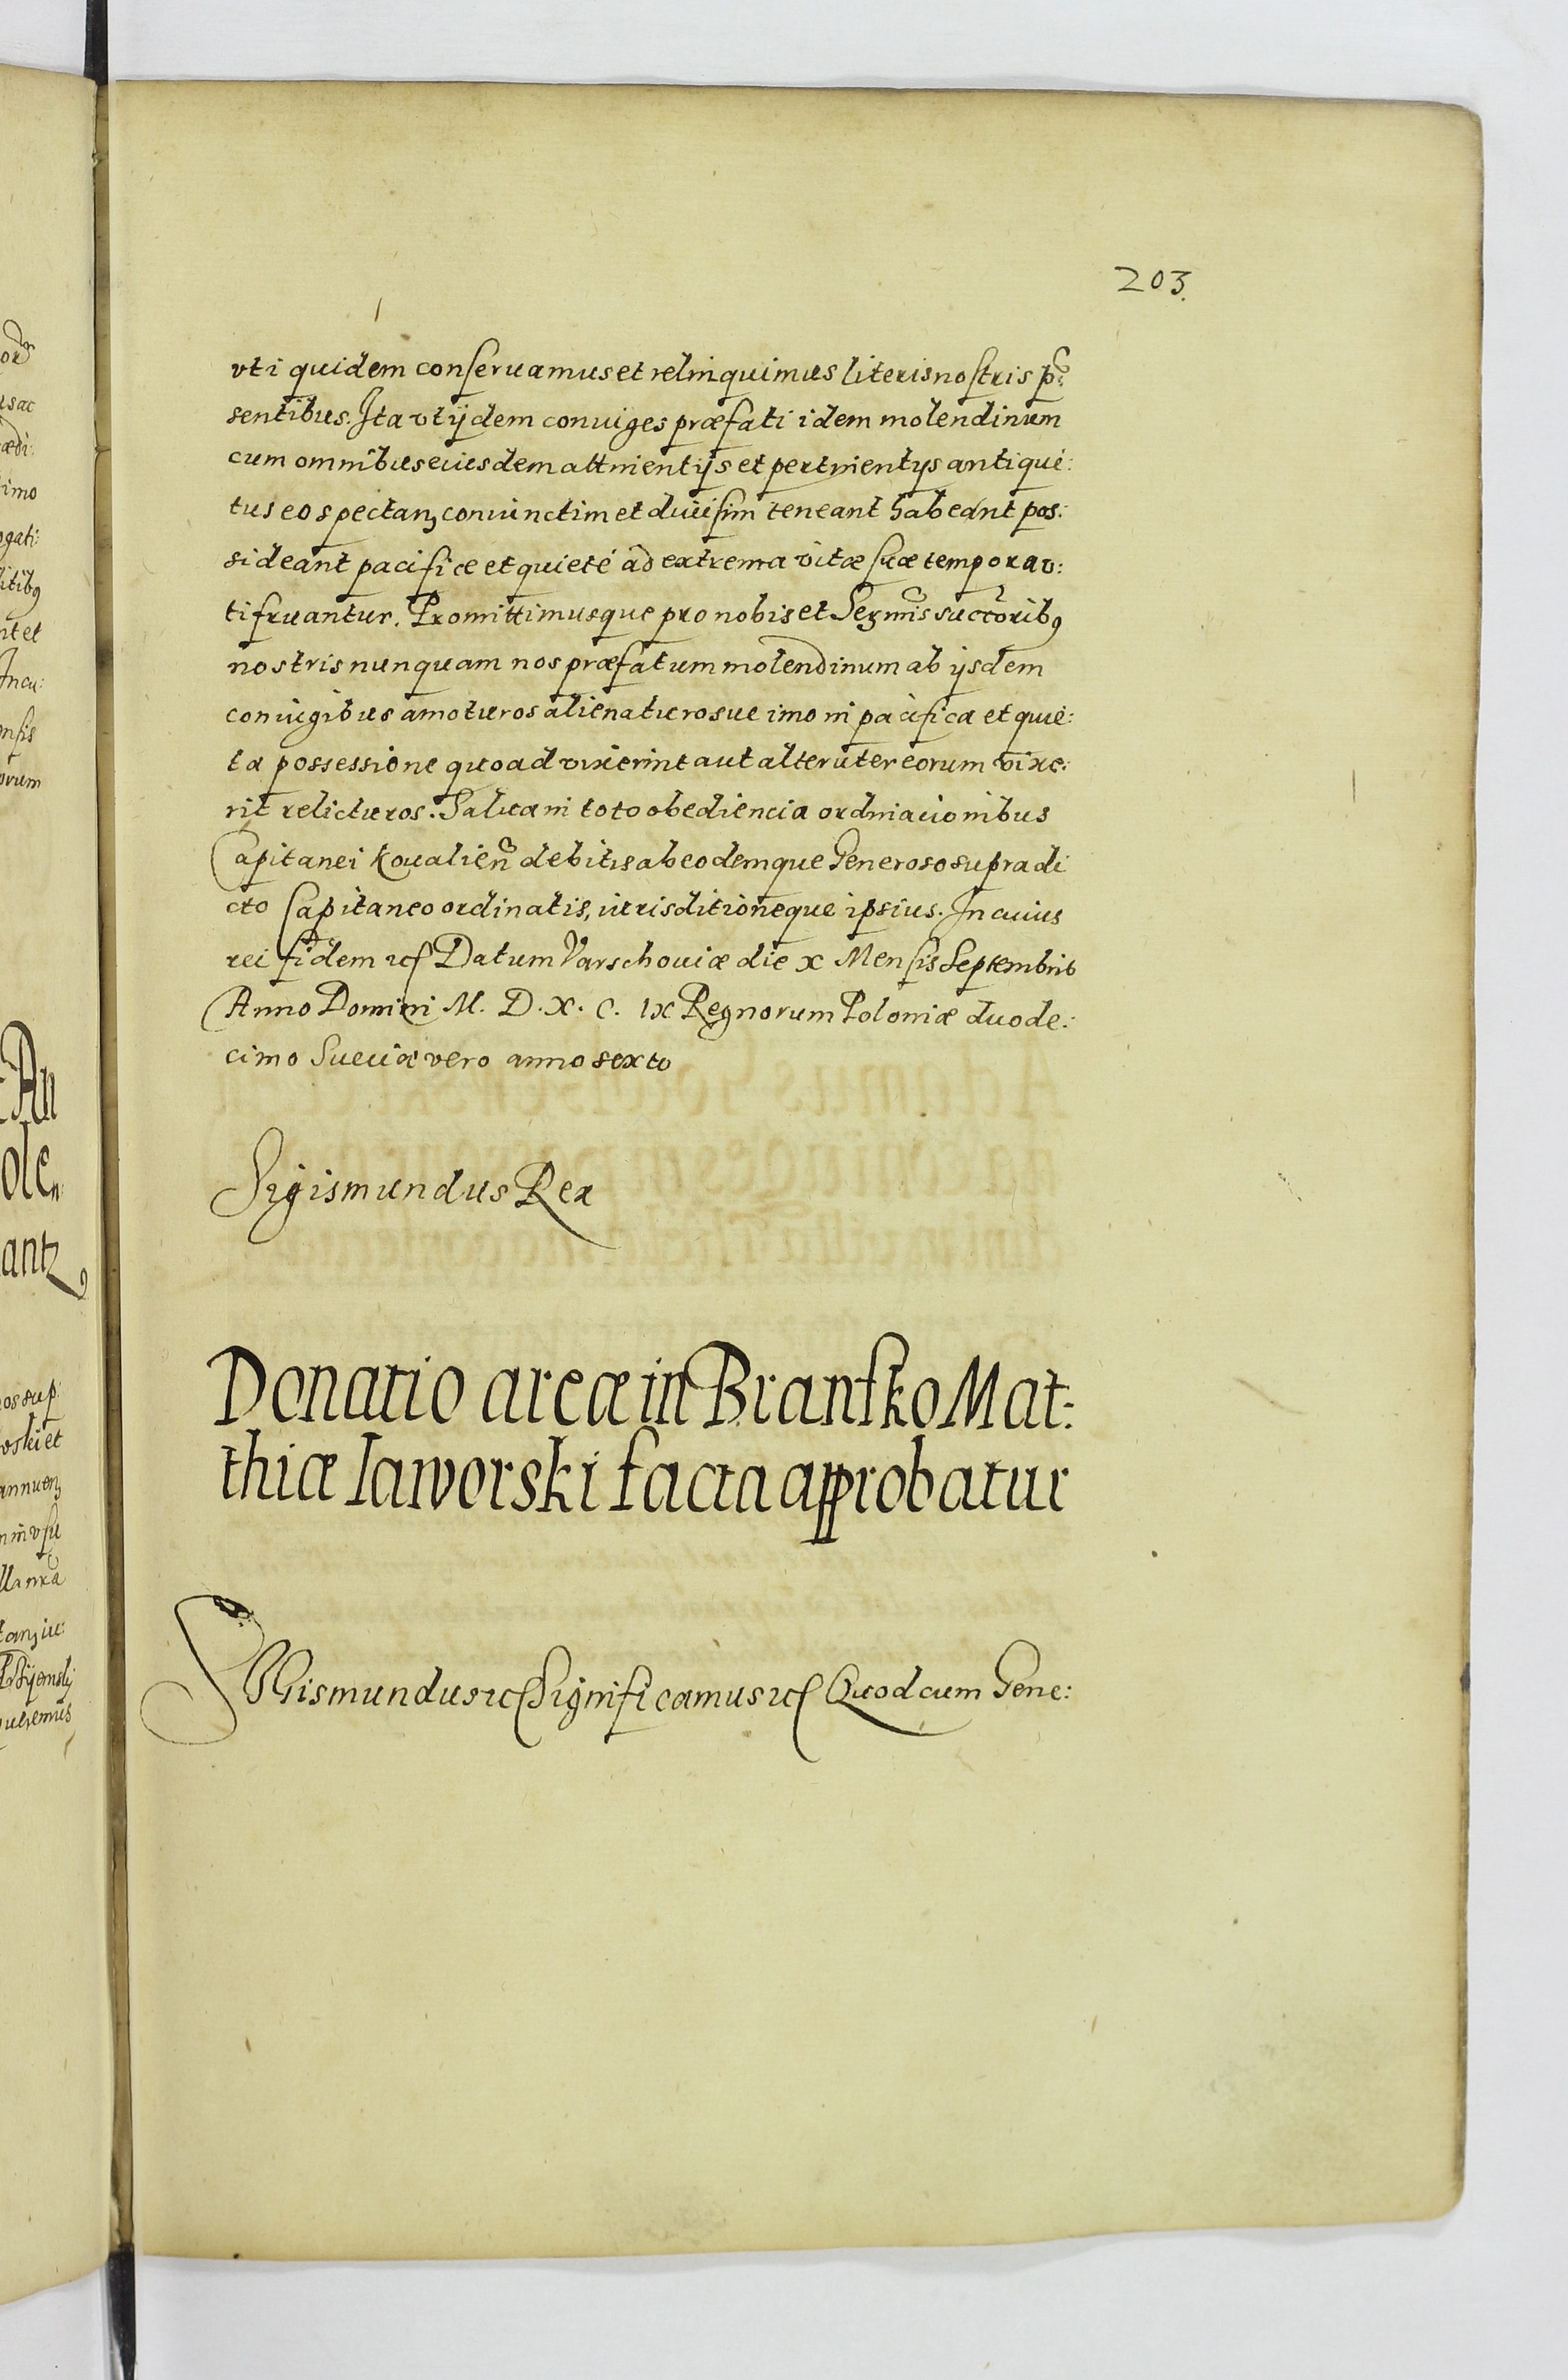 203.
vti quidem conseruamus et relinquimus literis nostris p̃:
sentibus. Ita vt ijdem coniuges præfati idem molendinum
cum omnibus eiusdem attinentijs et pertinentijs antiqui:
tus eo spectanȝ coniunctim et diuisim teneant habeant pos:
sideant pacifice et quieté ad extrema vitæ suæ tempora v:
ti fruantur. Promittimusque pro nobis et Serm̃is succr̃oribꝰ
nostris nunquam nos præfatum molendinum ab ijsdem
coniugibus amoturos alienaturosue imo in pacifica et quie:
ta possessione quoad vixerint aut alteruter eorum vixe:
rit relicturos. Salua in toto obediencia ordinacionibus
Capitanei Koualień debitis ab eodemque Generoso supradi
cto Capitaneo ordinatis, iurisditioneque ipsius. In cuius
rei fidem etc Datum Varschouiæ die x Mensis Septembris
Anno Domini M. D. X. C. IX Regnorum Poloniæ duode:
cimo Sueciæ vero anno sexto
Sigismundus Rex
Donatio areæ in Bransko Mat:
thiæ Iaworski facta approbatur
SIGismundus etc Significamus etc Quod cum Gene: